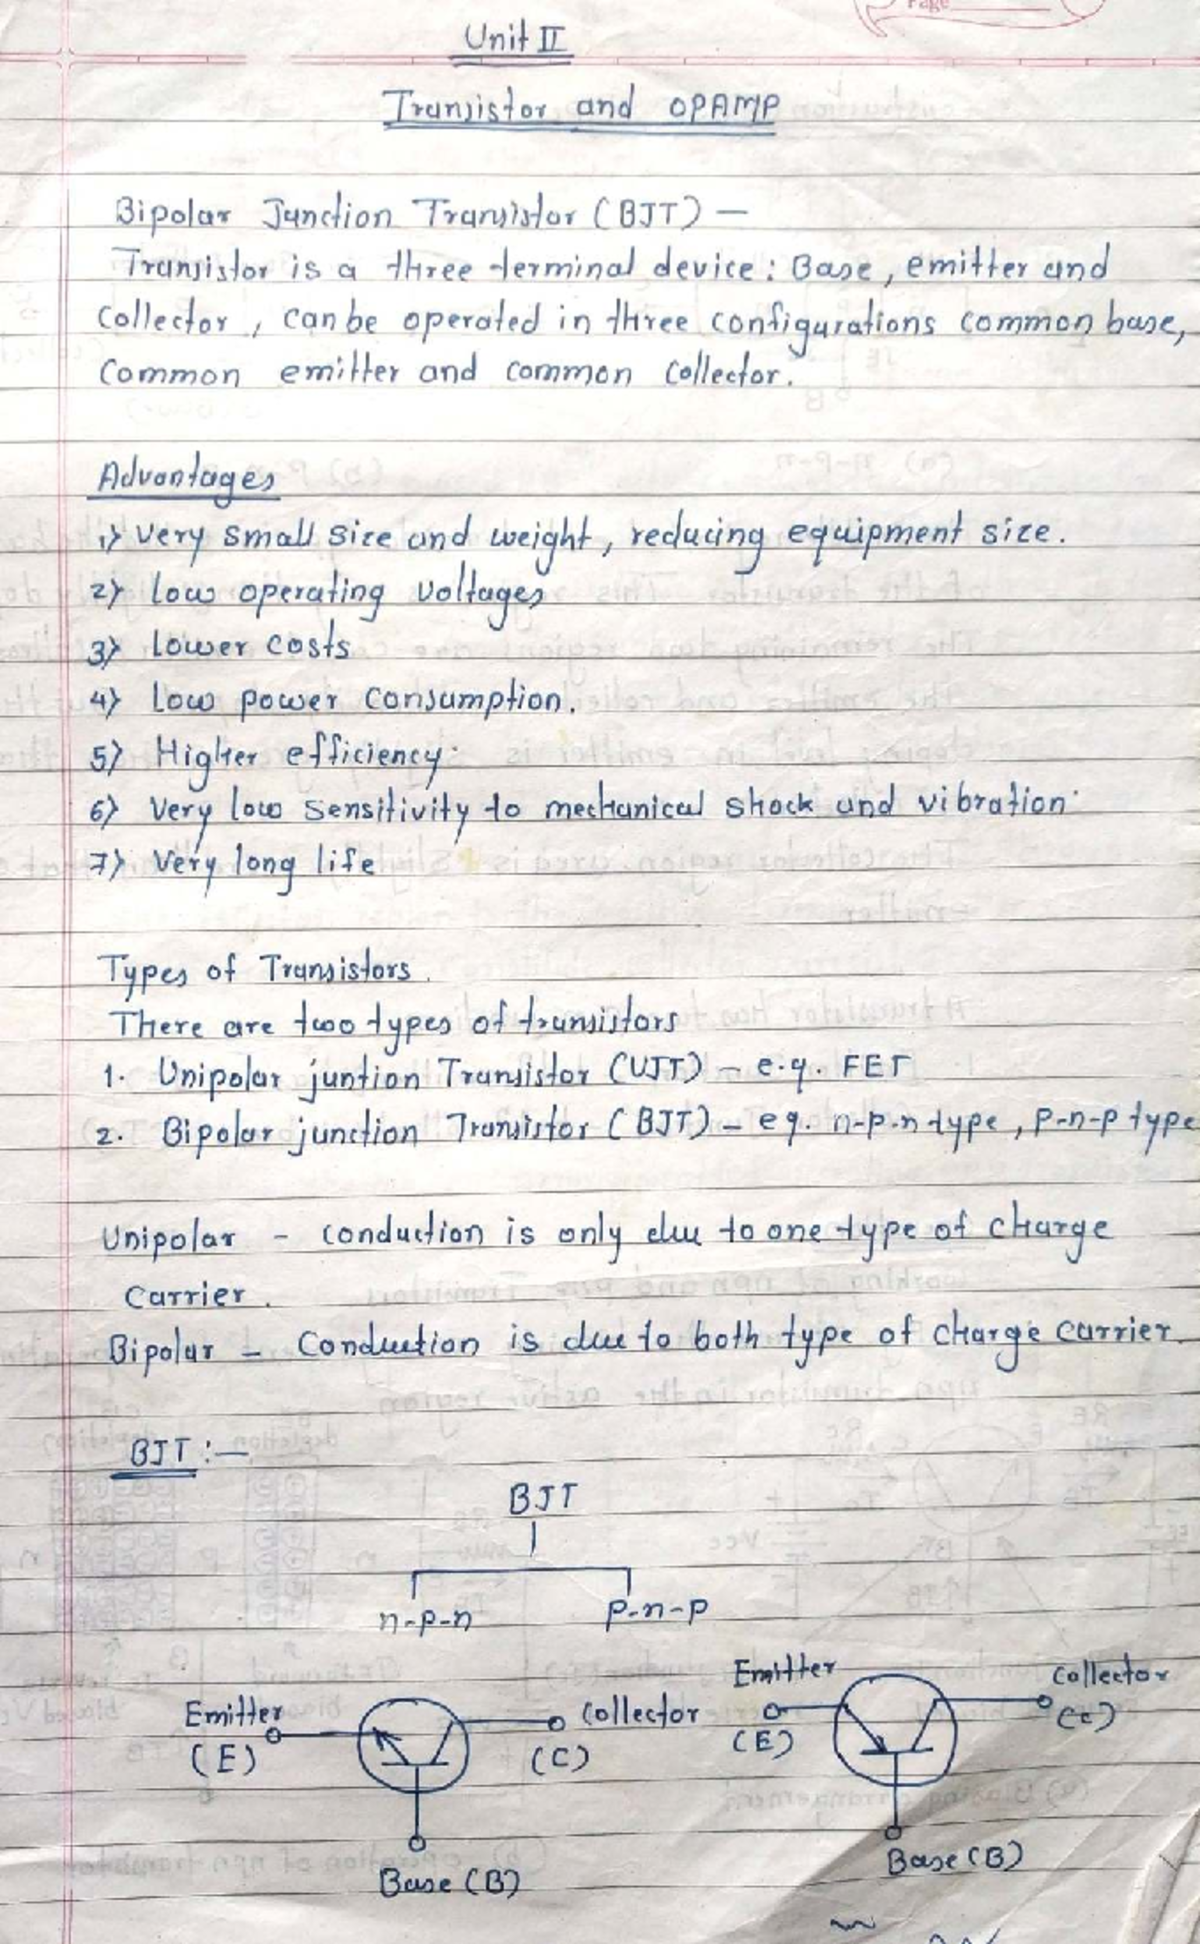 Page
Unit II
Transistor and OPAMP
Bipolar Junction Transistor (BJT) —
Transistor is a three terminal device : Base, emitter and
Collector, can be operated in three configurations common base,
Common emitter and common collector.
Advantages
1) Very small size and weight, reducing equipment size.
2) Low operating voltages
3) Lower costs
4) Low power consumption.
5) Higher efficiency.
6) Very low sensitivity to mechanical shock and vibration.
7) Very long life
Types of Transistors.
There are two types of transistors
1. Unipolar juntion Transistor (UJT) – e.g. FET
2. Bipolar junction Transistor (BJT) – eg. n-p-n type, p-n-p type
Unipolar - conduction is only due to one type of charge
carrier.
Bipolar – Conduction is due to both type of charge carrier.
BJT :—
BJT
n-p-n p-n-p
Emitter (E) Collector (C) Base (B)
Emitter (E) Collector (C) Base (B)